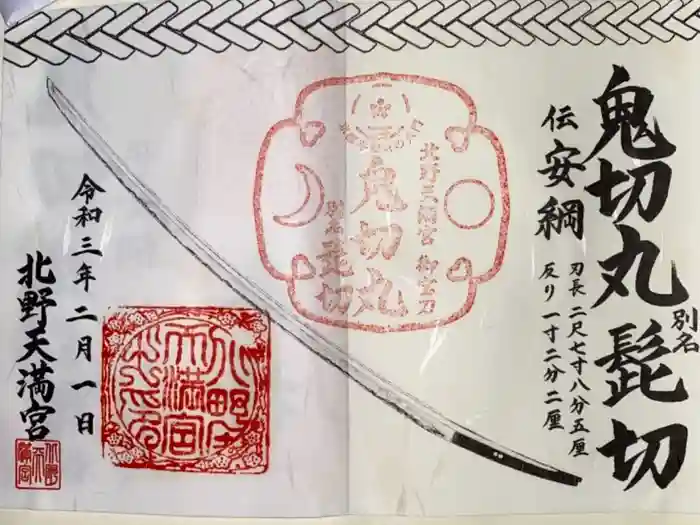 鬼切丸 別名 髭切
伝 安綱
刃長 二尺七寸八分五厘
反り 一寸二分二厘
北野天満宮 御宝刀
鬼切丸
別名 髭切
令和三年二月一日
北野天満宮